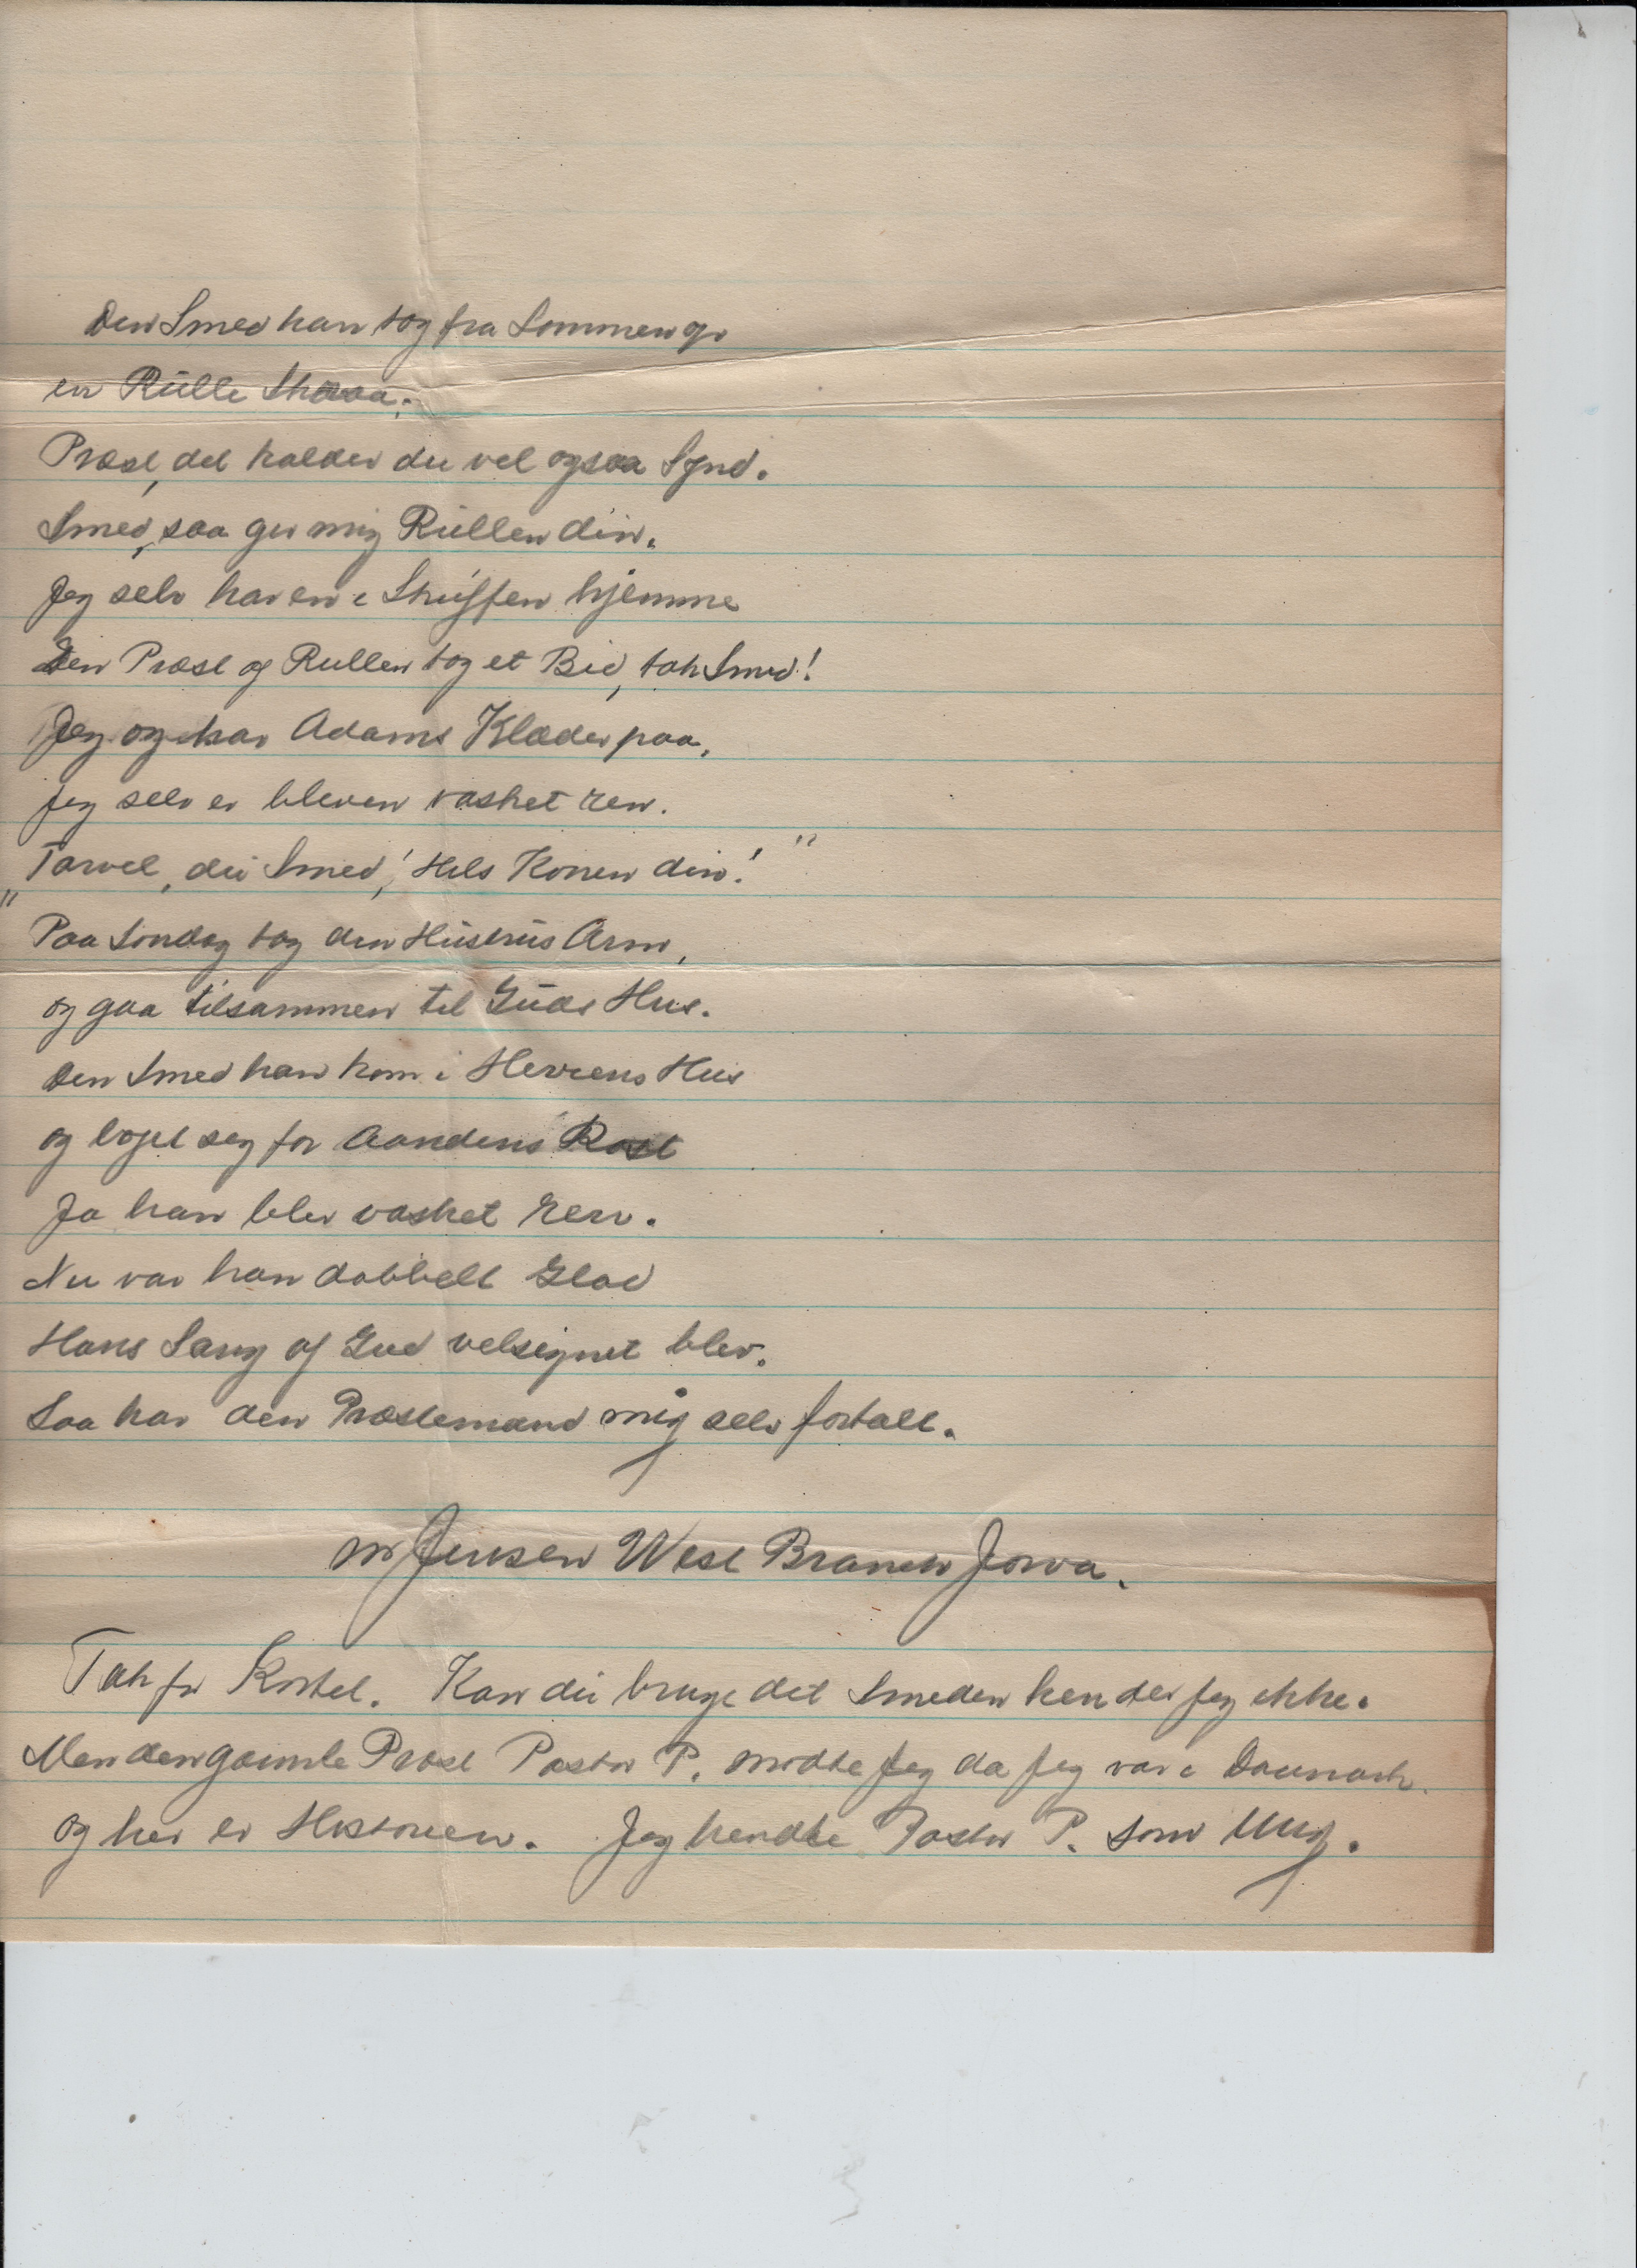 Den Smed han tog fra Lommen op
en Rulle Skraa.
Præst, det kalder du vel ogsaa Synd.
Smed, saa giv mig Rullen din.
Jeg selv har en i Skuffen hjemme
Den Præst af Rullen tog et Bid, tak Smed!
Jeg og har Adams Klæder paa,
jeg selv er bleven vasket ren.
„Farvel, du Smed,! Hils Konen din!"
Paa Søndag tag din Hustrus Arm,
og gaa tilsammen til Guds Hus.
Den Smed han kom i Herrens Hus
og bøjet sig for Aandens Røst
Ja han blev vasket ren.
Nu var han dobbelt Glad
Hans Sang af Gud velsignet blev.
Saa har den Præstemand mig selv fortalt.
M Jensen West Branch Iowa.
Tak for Kortet. Kan du bruge det Smeden kender jeg ikke.
Men den gamle Præst Pastor P. mødte jeg da jeg var i Danmark.
og her er Historien. Jeg kendte Pastor P. som Ung.